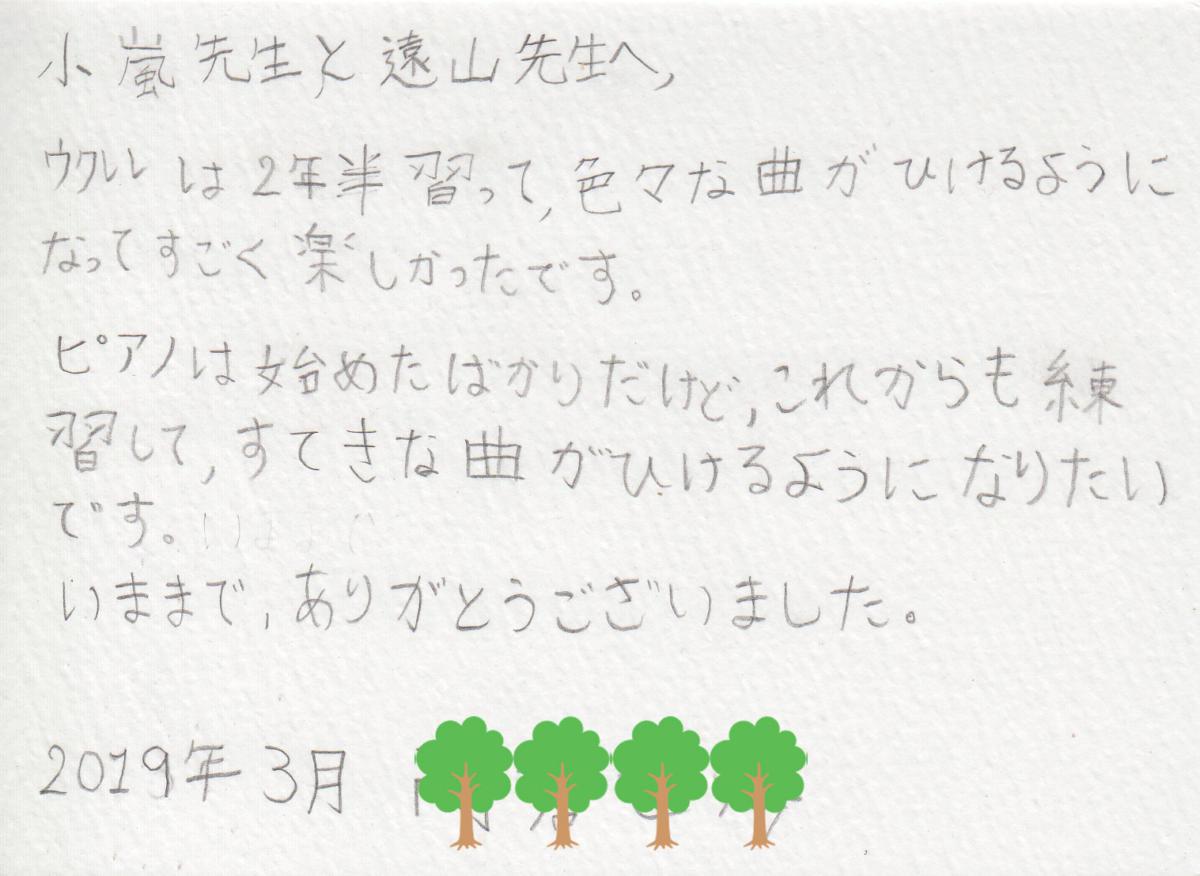 小嵐先生と遠山先生へ,
ウクレレは2年半習って,色々な曲がひけるように
なってすごく楽しかったです。
ピアノは始めたばかりだけど,これからも練
習して,すてきな曲がひけるようになりたい
です。
いままで,ありがとうございました。
2019年3月